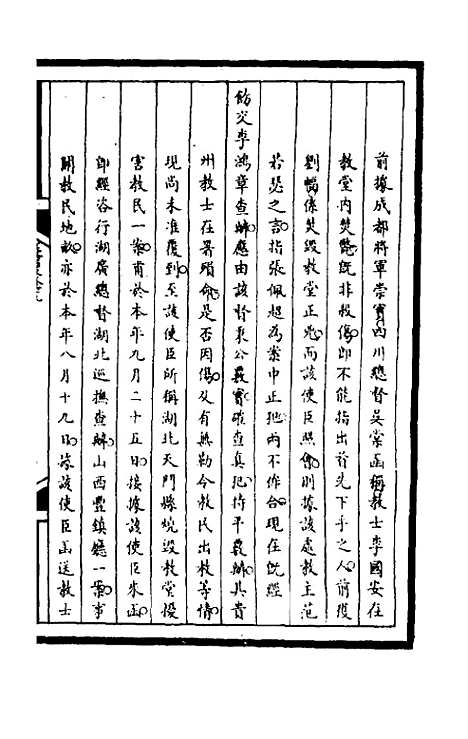 前據成都將軍崇實四川總督吳棠函稱教士李國安在
教堂內焚斃既非毆傷即不能指出首先下手之人前獲
劉幅係焚毀教堂正兇而該使臣照會則據該處教主范
若瑟之言指張佩超為案中正犯兩不作合現在既經
飭交李鴻章查辦應由該督秉公嚴實確查真犯持平嚴辦其貴
州教士在署殞命是否因傷及有無勒令教民出教等情
現尚未准覆到至該使臣所稱湖北天門縣燒毀教堂擾
害教民一案甫於本年九月二十五日接據該使臣來函
即經咨行湖廣總督湖北巡撫查辦山西豐鎮廳一案事
關教民地畝亦於本年八月十九日據該使臣函送教士